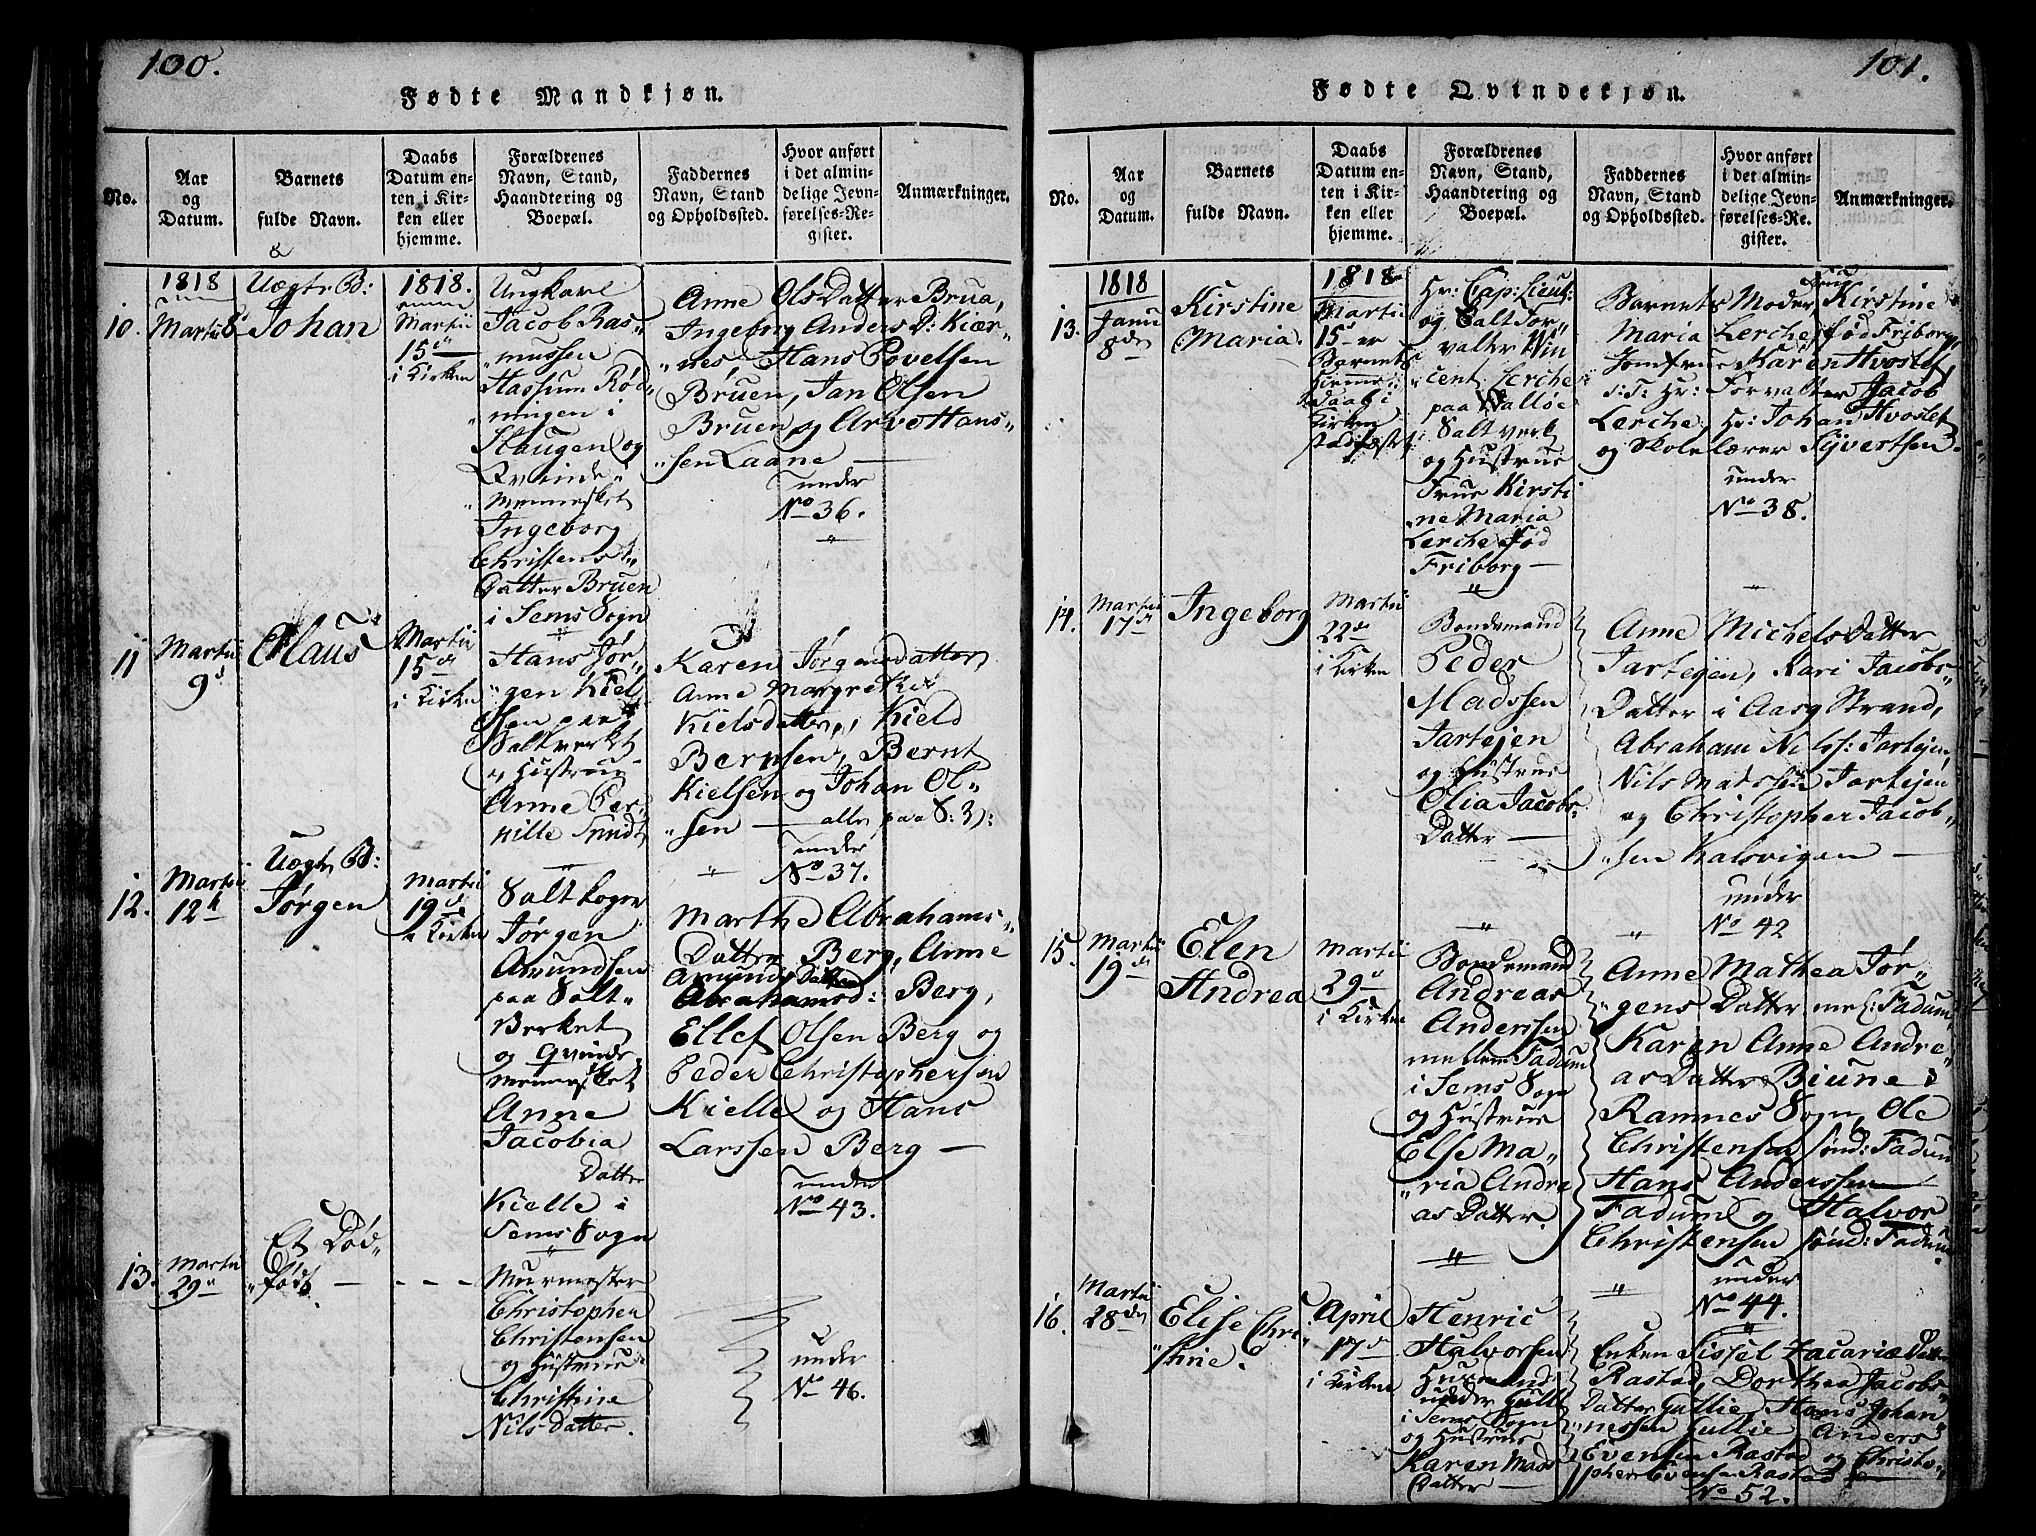 100.
Fødte Mandkjøn.
No.
Aar
og
Datum.
Barnets
fulde Navn.
Daabs
Datum en-
ten i Kir-
ken eller
hjemme.
Forældrenes
Navn, Stand,
Haandtering og
Boepæl.
Faddernes
Navn, Stand
og Opholdssted.
Hvor anført
i det almin-
delige Jevn-
førelses-Re-
gister.
Anmærkninger.
10.
1818
Martii 8
Uægte B:
Johan
1818.
Martii
15
i Kirken
Ungkarl
Jacob Ras-
mussen
Hassum Rød-
ningen i
Slaugen og
Qvinde-
mennesket
Ingeborg
Christens
Datter Bruen
i Sems Sogn
Anne Ols Datter Brua,
Ingeborg Anders D: Kiær-
nes Hans Povelsen
Bruen, Jan Olsen
Bruen og Arve Hans-
sen Laane
under
No 36.
11
Martii
9
Claus
Martii
15
i Kirken
Hans Jør-
gen Kiel-
sen paa
Saltverket
og Hustrue
Anne Per-
nille Smidt
Karen Jørgensdatter
Anne Margrethe
Kielsdatter, Kield
Berntsen, Bernt
Kielsen og Johan Ol-
sen — alle paa S: V:
under
No 37.
12.
Martii
12
Uægte B:
Jørgen
Martii
19
i Kirken
Saltkoger
Jørgen
Amundsen
paa Salt-
Verket
og Qvinde-
mennesket
Anne
Jacobia
Datter
Kielle i
Sems Sogn
Marthe Abrahams-
Datter Berg, Anne
Amunds Datter
Abrahamsd: Berg,
Ellef Olsen Berg og
Peder Christophersen
Kielle og Hans
Larssen Berg —
under
No 43.
13.
Martii
29
Et Død-
født.
Murmester
Christopher
Christensen
og Hustrue
Christine
Nils Datter.
under
No 46.
101.
Fødte Qvindekjøn.
No.
Aar
og
Datum.
Barnets
fulde Navn.
Daabs
Datum en-
ten i Kir-
ken eller
hjemme.
Forældrenes
Navn, Stand,
Haandtering og
Boepæl.
Faddernes
Navn, Stand
og Opholdssted.
Hvor anført
i det almin-
delige Jevn-
førelses-Re-
gister.
Anmærkninger.
13.
1818
Janu
8
Kirstine
Maria.
1818
Martii
15 er
Barnets
Hiemme
daab i
Kirken
stadfæstet
Hr: Cap: Lieut:
og Salt For-
valter Vin
cent Lerche
paa Walløe
Saltverk
og Hustrue
Frue Kirsti
ne Maria
Lerche fød
Friborg —
Barnets Moder, Frue Kirstine
Maria Lerche, fød Friborg,
Jomfrue Karen Hvoslef,
S: T: Hr: Forvalter Jacob
Lerche, Hr: Johan Hvoslef
og Skolelærer Syvertsen.
under
No 38.
14.
Martii
17
Ingeborg
Martii
22
i Kirken
Bondemand
Peder
Madssen
Jartejen
og Hustrue
Olia Jacobs-
Datter —
Anne Michels Datter
Jartejen, Kari Jacobs-
Datter i Aasg Strand,
Abraham Nilss: Jartejen,
Nils Madssen Jartejen
og Christopher Jacob-
sen Kalsvigen —
under
No 42
15.
Martii
19
Elen
Andrea
Martii
29
i Kirken
Bondemand
Andreas
Anderssen
mellem Fadum
i Sems Sogn
og Hustrue
Else Ma-
ria Andre
as Datter.
Anne Mathea Jør-
gens Datter mel: Fadum,
Karen Anne Andre-
as Datter Biune i
Ramnes Sogn, Ole
Christensen sønd: Fadum
Hans Anderssen
Fadum og Halvor
Christensen sønd: Fadum.
under
No 44.
16.
Martii
28
Elise Chri-
stine.
April
17
i Kirken
Henric
Halvorsen
Huusmand
under Gulli
i Sems Sogn
og Hustrue
Karen Mads
Datter —
Enken Sissel Zacariæ Datter
Rastad, Dorthea Jacobs-
Datter Gullie, Hans Johan-
nessen Gullie, Anders
Evensen Rastad og Christo-
pher Evensen Rastad —
No 52.